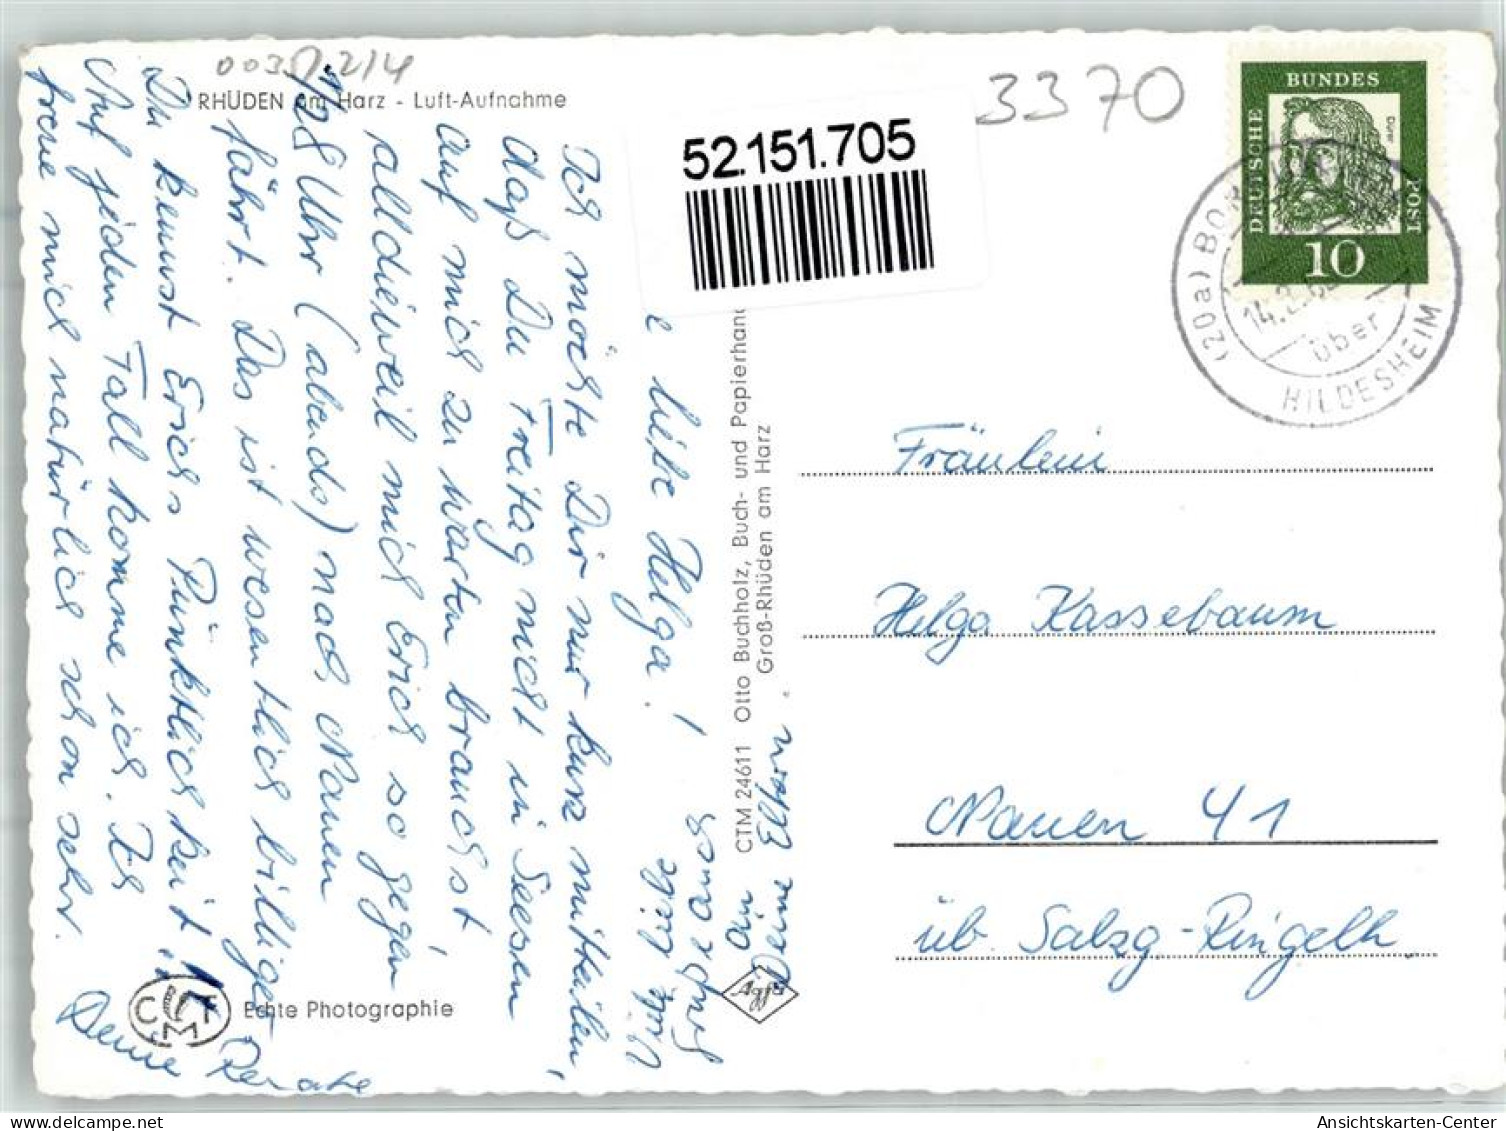 0035
1214
RHÜDEN am Harz - Luft-Aufnahme
52.151.705
3370
BUNDES
DEUTSCHE
POST
Dürer
10
(20a) BO
14.2.6
über
HILDESHEIM
e liebe Helga!
Ich möchte Dir nur kurz mitteilen,
daß Du Freitag nicht in Seesen
auf mich zu warten brauchst
alldieweil mich Erich so gegen
1/28 Uhr (abends) nach Nauen
fährt. Das ist wesentlich billiger
Du kennst Erichs Pünktlichkeit!!
Auf jeden Fall komme ich. Ich
freue mich natürlich schon sehr.
Deine Renate
Viele liebe
Grüße auch
an
Deine Eltern.
CTM 24611 Otto Buchholz, Buch- und Papierhand
Groß-Rhüden am Harz
Agfa
CTM
Echte Photographie
Fräulein
Helga Kassebaum
Nauen 41
üb. Salzg-Ringelh.
Ansichtskarten-Center